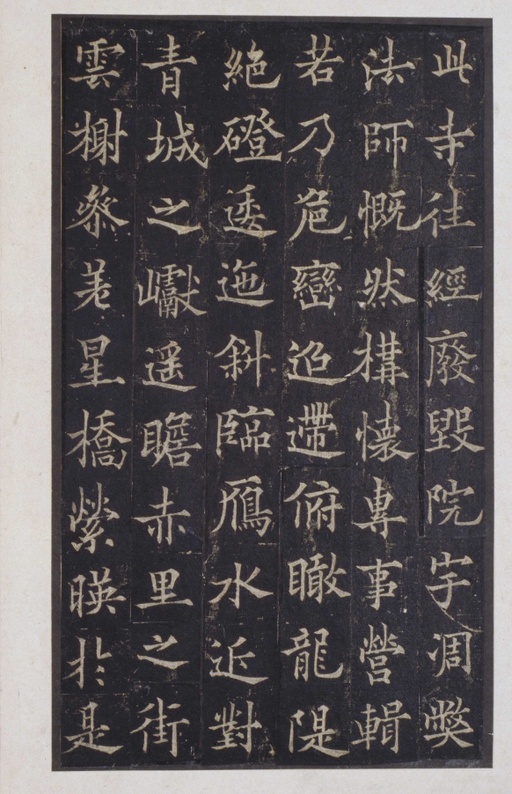 此寺往經廢毀院宇凋弊
法師慨然構懷專事營輯
若乃危巒迢遰俯瞰龍隄
絶磴逶迤斜臨鴈水近對
青城之巘遥瞻赤里之街
雲榭叅差星橋縈暎於是